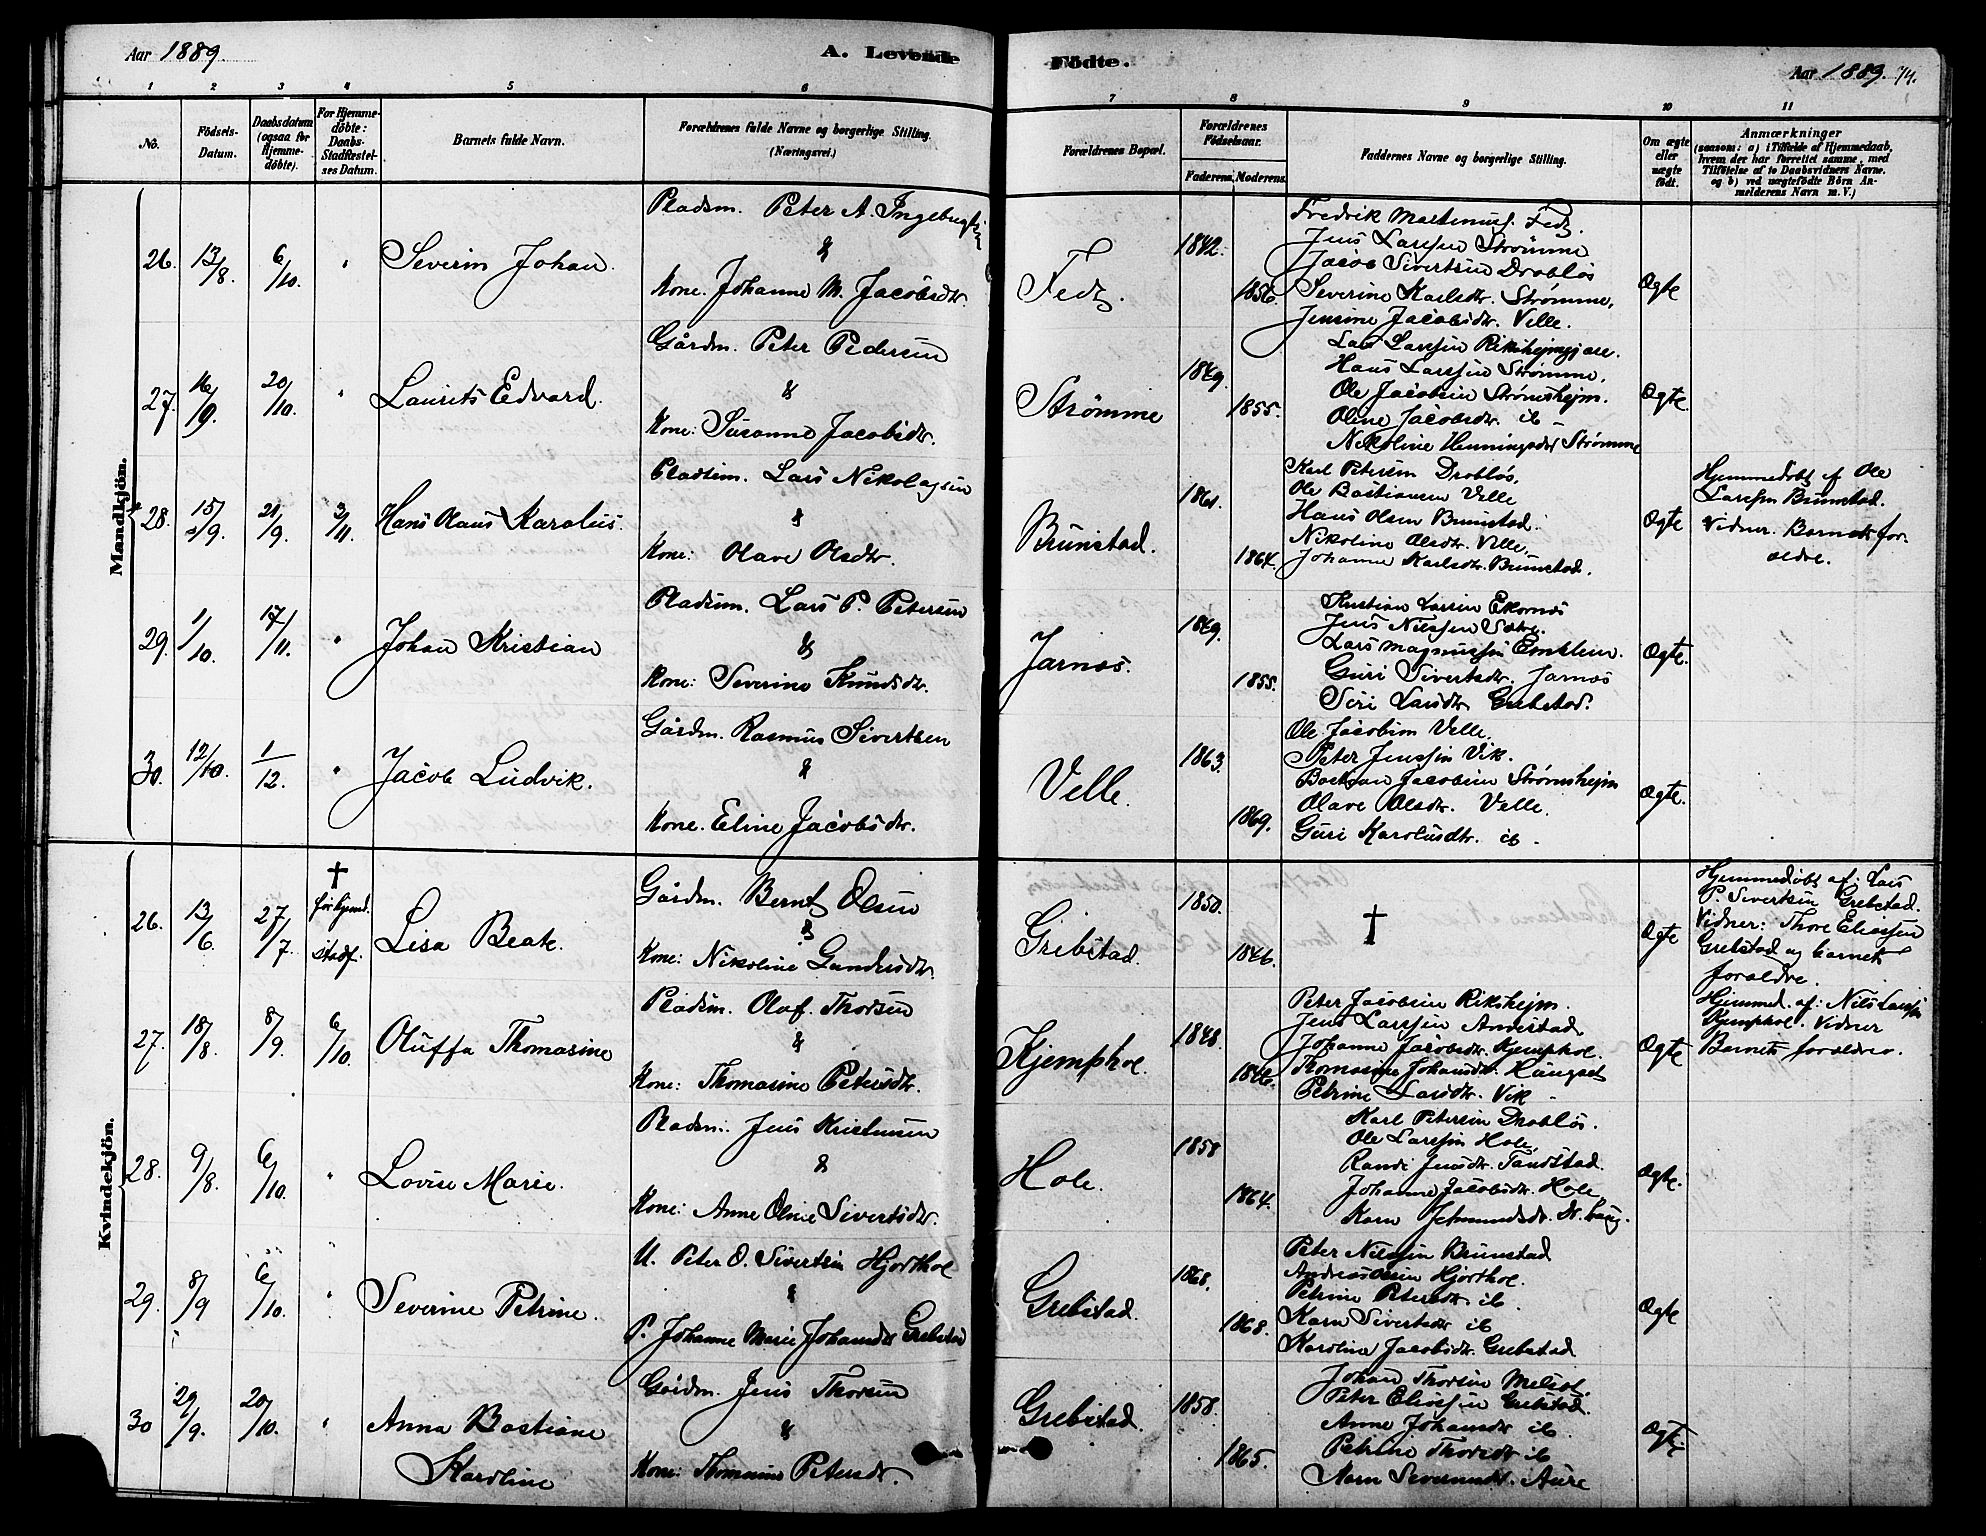 Aar 1889. A. Levende Födte. Aar 1889. 74.
1 2 3 4 5 6 7 8 9 10 11
No.
Födsels-Datum.
Daabsdatum (ogsaa for Hjemme-döbte).
For Hjemme-döbte: Daabs-Stadfæstel-ses Datum.
Barnets fulde Navn.
Forældrenes fulde Navne og borgerlige Stilling. (Næringsvei.)
Forældrenes Bopæl.
Forældrenes Födselsaar.
Faderens. Moderens.
Faddernes Navne og borgerlige Stilling.
Om ægte eller uægte födt.
Anmærkninger
(saasom: a) i Tilfælde af Hjemmedaab, hvem der har forrettet samme, med Tilföielse af to Daabsvidners Navne. og b) ved uægtefödte Börn Anmelderens Navn m. V.)
Mandkjön.
26. 13/8. 6/10. " Severin Johan.
Pladsm. Peter A. Ingebrigtsen
&
Kone. Johanne M. Jacobsdtr.
Fedt.
1842.
1856.
Fredrik Martinus. Fedt.
Jens Larssen Strømme
Jacob Sivertsen Drabløs
Severine Karlsdtr. Strømme,
Jensine Jacobsdtr. Velle.
Ægte
27. 16/9. 20/10. " Laurits Edvard.
Gårdm. Peter Pedersen
&
Kone: Susanne Jacobsdtr.
Strømme
1849.
1855.
Lars Larssen Rikshejmgjære.
Hans Larssen Strømme.
Ole Jacobsen Strømshejm.
Oline Jacobsdtr. ib -
Nikoline Henningsdtr Strømme
Ægte.
28. 15/9. 21/9. 3/11. Hans Olaus Karolus.
Pladsm. Lars Nikolaysen
&
Kone: Olave Olsdtr.
Brunstad.
1861.
1864.
Karl Petersen Drabløs,
Ole Bastiansen Velle
Hans Olsen Brunstad.
Nikoline Olsdtr. Velle,
Johanne Karlsdtr. Brunstad.
Ægte
Hjemmedöbt af Ole
Larssen Brunstad.
Vidner. Barnets for-
ældre.
29. 1/10. 17/11. " Johan Kristian
Pladsm. Lars P. Petersen
&
Kone: Severine Knudsdtr.
Jarnæs.
1849.
1855.
Kristian Larsen Ekornæs
Jens Nilssen Sætre.
Lars Magnussen Emblem.
Guri Sivertsdtr. Jarnæs
Siri Larsdtr Grebstad.
Ægte.
30. 12/10. 1/12. " Jacob Ludvik.
Gårdm. Rasmus Sivertsen
&
Kone. Eline Jacobsdtr.
Velle.
1863.
1869.
Ole Jacobsen Velle.
Peter Jenssen Vik.
Bastian Jacobsen Strømshejm
Olave Olsdtr. Velle.
Guri Karolusdtr. ib.
Ægte.
Kvindekjön.
26. 13/6. 27/7. † før hjemd. stadf. Lisa Beate.
Gårdm. Bernt Olsen
&
Kone: Nikoline Gundersdtr.
Grebstad.
1850.
1846.
†
Ægte
Hjemmedöbt af: Lars
P. Sivertsen Grebstad.
Vidner: Thore Eliassen
Grebstad og barnets
forældre.
27. 18/8. 8/9. 6/10. Oluffa Thomasine
Pladsm. Olaf Thorsen
&
Kone: Thomasine Petersdtr.
Kjemphol.
1848.
1846.
Peter Jacobsen Rikshejm.
Jens Larssen Amdstad
Johanne Jacobsdtr. Kjemphol.
Thomasine Johansdtr. Haugset
Petrine Larsdtr. Vik -
Ægte
Hjemmed. af: Nils Larssen
Kjemphol. Vidner
Barnets forældre.
28. 9/8. 6/10. " Lovise Marie.
Pladsm. Jens Kristensen
&
Kone: Anne Oline Sivertsdtr.
Hole.
1858
1864.
Karl Petersen Drabløs.
Ole Larssen Hole,
Randi Jensdtr. Tandstad.
Johanne Jacobsdtr. Hole,
Karn Jetmundsdtr. St. haug.
Ægte.
29. 8/9 6/10. " Severine Petrine.
U. Peter O. Sivertsen Hjorthol
&
P. Johanne Marie Johansdtr Grebstad
Grebstad.
1868.
1868.
Peter Nilssen Brunstad
Andreas Olsen Hjorthol.
Petrine Petersdtr. ib.
Karn Sivertsdtr ib
Karolina Jacobsdtr. Grebstad
Ægte
30 29/9. 20/10. " Anna Bastiane
Karoline
Gårdm. Jens Thorsen
&
Kone: Thomasine Petersdtr.
Grebstad.
1858.
1865.
Johan Thorsen Melset.
Peter Eliassen Grebstad.
Anne Johansdtr ib.
Petrine Thorsdtr ib
Karn Severinsdtr. Aure
Ægte